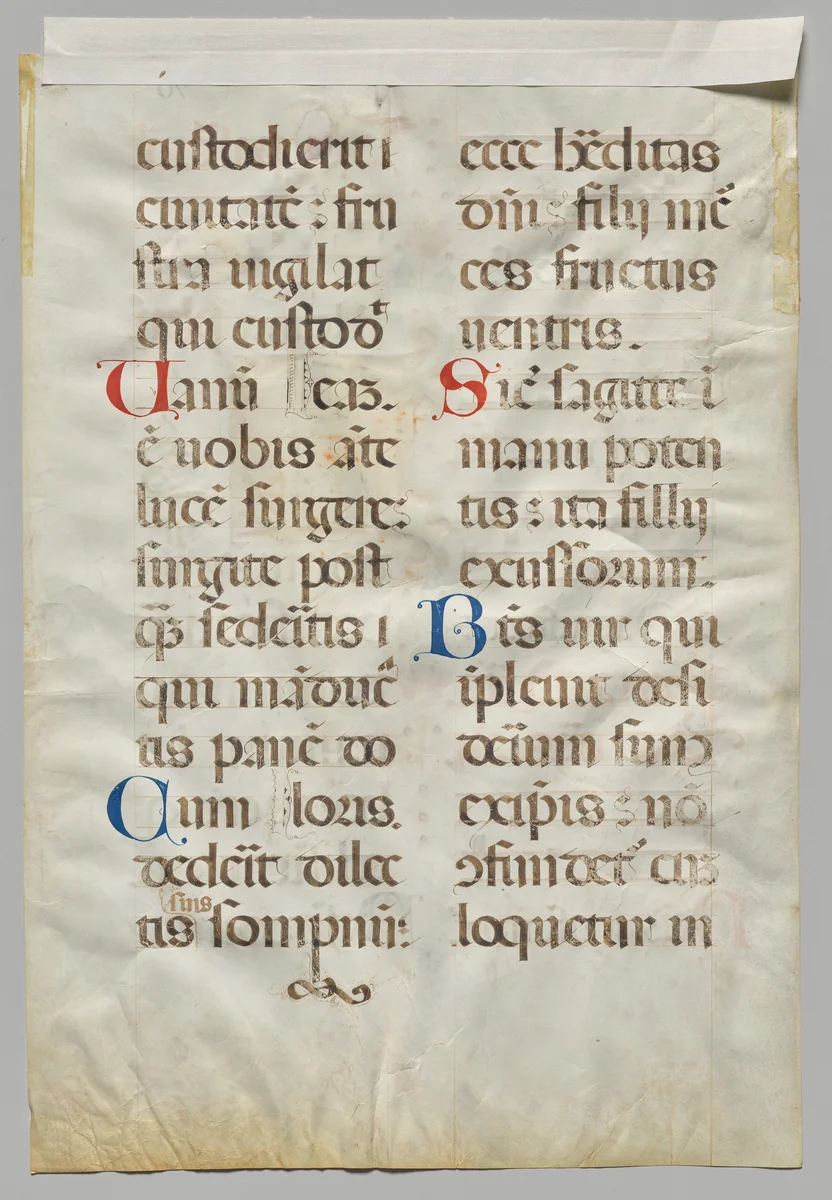 custodierit i
ciuitatē : fru
stra uigilat
qui custodᵗ
Uanū eaʒ.
ē uobis āte
lucē surgere:
surgite post
q̄ʒ sedeītis i
qui māducᵃ
tis panē do
Cum loris.
dedeīt dilec
suis
tis sompnū:
ecce hēditas
dn̄i : filij mē
ces fructus
uentris.
Sic̄ sagitte ī
manu poten
tis : ita fillij
excussorum.
Bt̄s uir qui
īpleuit desi
deīium suuʒ
ex ip̄is : nō
ɔfundet̄ cuʒ
loquetur in